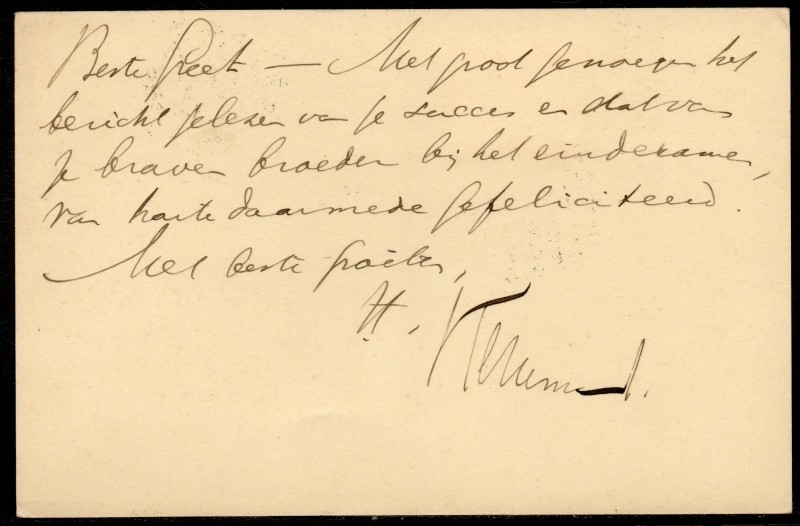 Beste Greet — Met groot genoegen het
bericht gelezen van je succes en dat van
je braven broeder bij het eindexamen,
van harte daarmede gefeliciteerd.
Met beste groeten,
H.